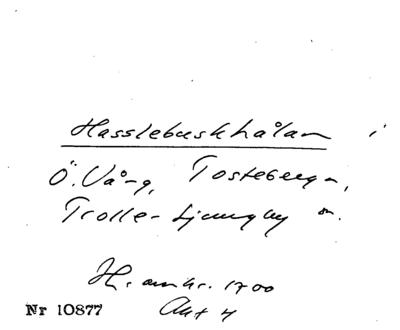 Hasslebuskhålan i
Ö. Vång, Tosteberga,
Trolle-Ljungby sn.
H. omkr. 1700
Akt 4
Nr 10877